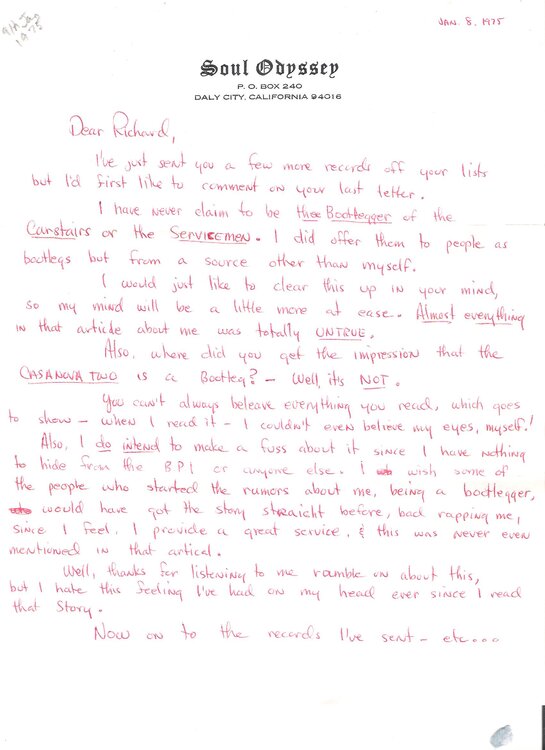 9th Jan
1975
JAN. 8, 1975
Soul Odyssey
P. O. BOX 240
DALY CITY, CALIFORNIA 94016
Dear Richard,
I've just sent you a few more records off your lists
but I'd first like to comment on your last letter.
I have never claim to be thee Bootlegger of the
Carstairs or the SERVICEMEN. I did offer them to people as
bootlegs but from a source other than myself.
I would just like to clear this up in your mind,
so my mind will be a little more at ease. Almost everything
in that article about me was totally UNTRUE.
Also, where did you get the impression that the
CASANOVA TWO is a Bootleg? - Well, its NOT.
You can't always beleave everything you read, which goes
to show - when I read it - I couldn't even believe my eyes, myself!
Also, I do intend to make a fuss about it since I have nothing
to hide from the BPI or anyone else. I wish some of
the people who started the rumors about me, being a bootlegger,
would have got the story straight before, bad rapping me,
since I feel, I provide a great service, & this was never even
mentioned in that artical.
Well, thanks for listening to me ramble on about this,
but I hate this feeling I've had on my head ever since I read
that Story.
Now on to the records I've sent - etc...